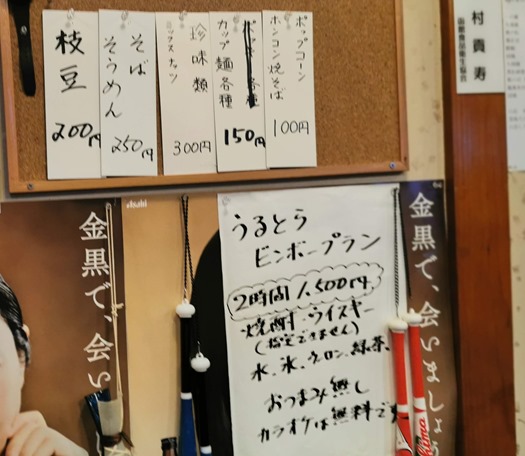 枝豆
200円
そば
そうめん
250円
珍味類
ミックスナッツ
300円
カップ麺各種
150円
ポップコーン
ホンコン焼そば
100円
村貴寿
函館食品衛生協会
うるとら
ビンボープラン
2時間1,500円
焼酎、ウイスキー
(指定できません)
水、氷、ウーロン、緑茶、
おつまみ無し
カラオケは無料です
Asahi
金黒で、会い
金黒で、会いましょう